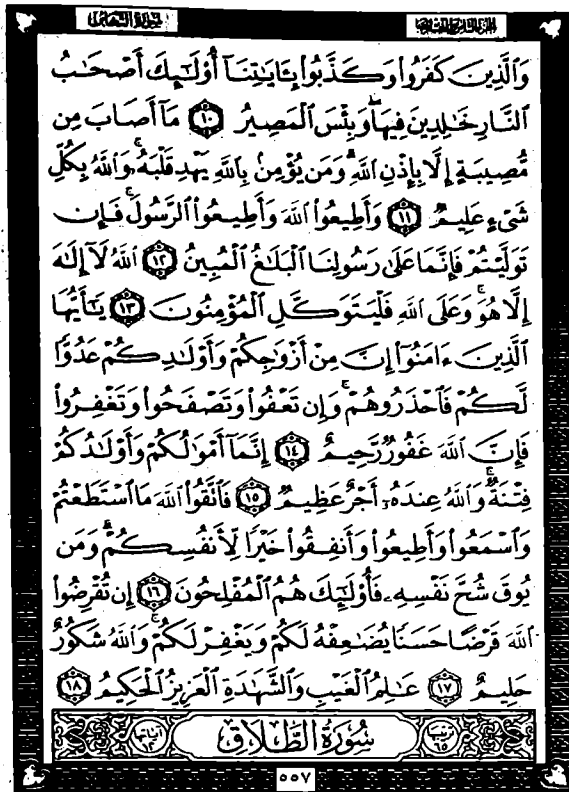 سُورَةُ التَّغَابُنِ
وَٱلَّذِينَ كَفَرُوا۟ وَكَذَّبُوا۟ بِـَٔايَـٰتِنَآ أُو۟لَـٰٓئِكَ أَصْحَـٰبُ
ٱلنَّارِ خَـٰلِدِينَ فِيهَا ۖ وَبِئْسَ ٱلْمَصِيرُ ۝١٠ مَآ أَصَابَ مِن
مُّصِيبَةٍ إِلَّا بِإِذْنِ ٱللَّهِ ۗ وَمَن يُؤْمِنۢ بِٱللَّهِ يَهْدِ قَلْبَهُۥ ۚ وَٱللَّهُ بِكُلِّ
شَىْءٍ عَلِيمٌ ۝١١ وَأَطِيعُوا۟ ٱللَّهَ وَأَطِيعُوا۟ ٱلرَّسُولَ ۚ فَإِن
تَوَلَّيْتُمْ فَإِنَّمَا عَلَىٰ رَسُولِنَا ٱلْبَلَـٰغُ ٱلْمُبِينُ ۝١٢ ٱللَّهُ لَآ إِلَـٰهَ
إِلَّا هُوَ ۚ وَعَلَى ٱللَّهِ فَلْيَتَوَكَّلِ ٱلْمُؤْمِنُونَ ۝١٣ يَـٰٓأَيُّهَا
ٱلَّذِينَ ءَامَنُوٓا۟ إِنَّ مِنْ أَزْوَٰجِكُمْ وَأَوْلَـٰدِكُمْ عَدُوًّا
لَّكُمْ فَٱحْذَرُوهُمْ ۚ وَإِن تَعْفُوا۟ وَتَصْفَحُوا۟ وَتَغْفِرُوا۟
فَإِنَّ ٱللَّهَ غَفُورٌ رَّحِيمٌ ۝١٤ إِنَّمَآ أَمْوَٰلُكُمْ وَأَوْلَـٰدُكُمْ
فِتْنَةٌ ۚ وَٱللَّهُ عِندَهُۥٓ أَجْرٌ عَظِيمٌ ۝١٥ فَٱتَّقُوا۟ ٱللَّهَ مَا ٱسْتَطَعْتُمْ
وَٱسْمَعُوا۟ وَأَطِيعُوا۟ وَأَنفِقُوا۟ خَيْرًا لِّأَنفُسِكُمْ ۗ وَمَن
يُوقَ شُحَّ نَفْسِهِۦ فَأُو۟لَـٰٓئِكَ هُمُ ٱلْمُفْلِحُونَ ۝١٦ إِن تُقْرِضُوا۟
ٱللَّهَ قَرْضًا حَسَنًا يُضَـٰعِفْهُ لَكُمْ وَيَغْفِرْ لَكُمْ ۚ وَٱللَّهُ شَكُورٌ
حَلِيمٌ ۝١٧ عَـٰلِمُ ٱلْغَيْبِ وَٱلشَّهَـٰدَةِ ٱلْعَزِيزُ ٱلْحَكِيمُ ۝١٨
ترتيبها ٦٥ سُورَةُ الطَّلَاقِ آياتها ١٢
٥٥٧